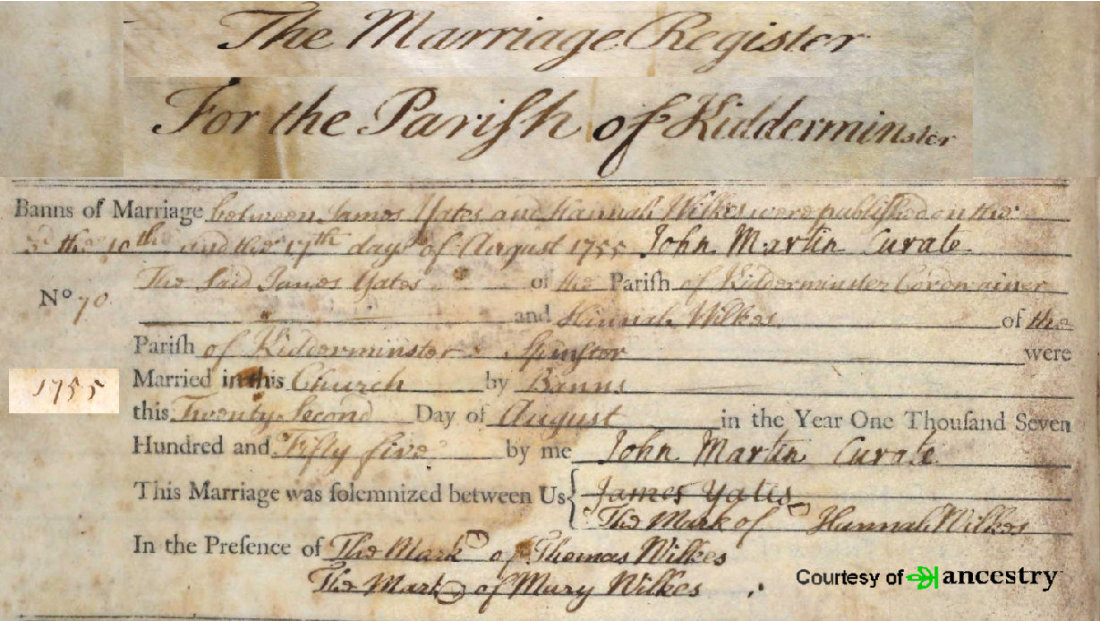 The Marriage Register
For the Pariſh of Kidderminster
Banns of Marriage between James Yates and Hannah Wilkes were publiſhed on the
3d the 10th and the 17th day of August 1755 John Martin Curate
The said James Yates of the Pariſh of Kidderminster Cordwainer
No 70
and Hannah Wilkes of the
Pariſh of Kidderminster Spinster were
1755
Married in this Church by Banns
this Twenty Second Day of August in the Year One Thouſand Seven
Hundred and Fifty five by me John Martin Curate
This Marriage was ſolemnized between Us James Yates
The Mark of Hannah Wilkes
In the Preſence of The Mark of Thomas Wilkes
The Mark of Mary Wilkes
Courtesy of ancestry